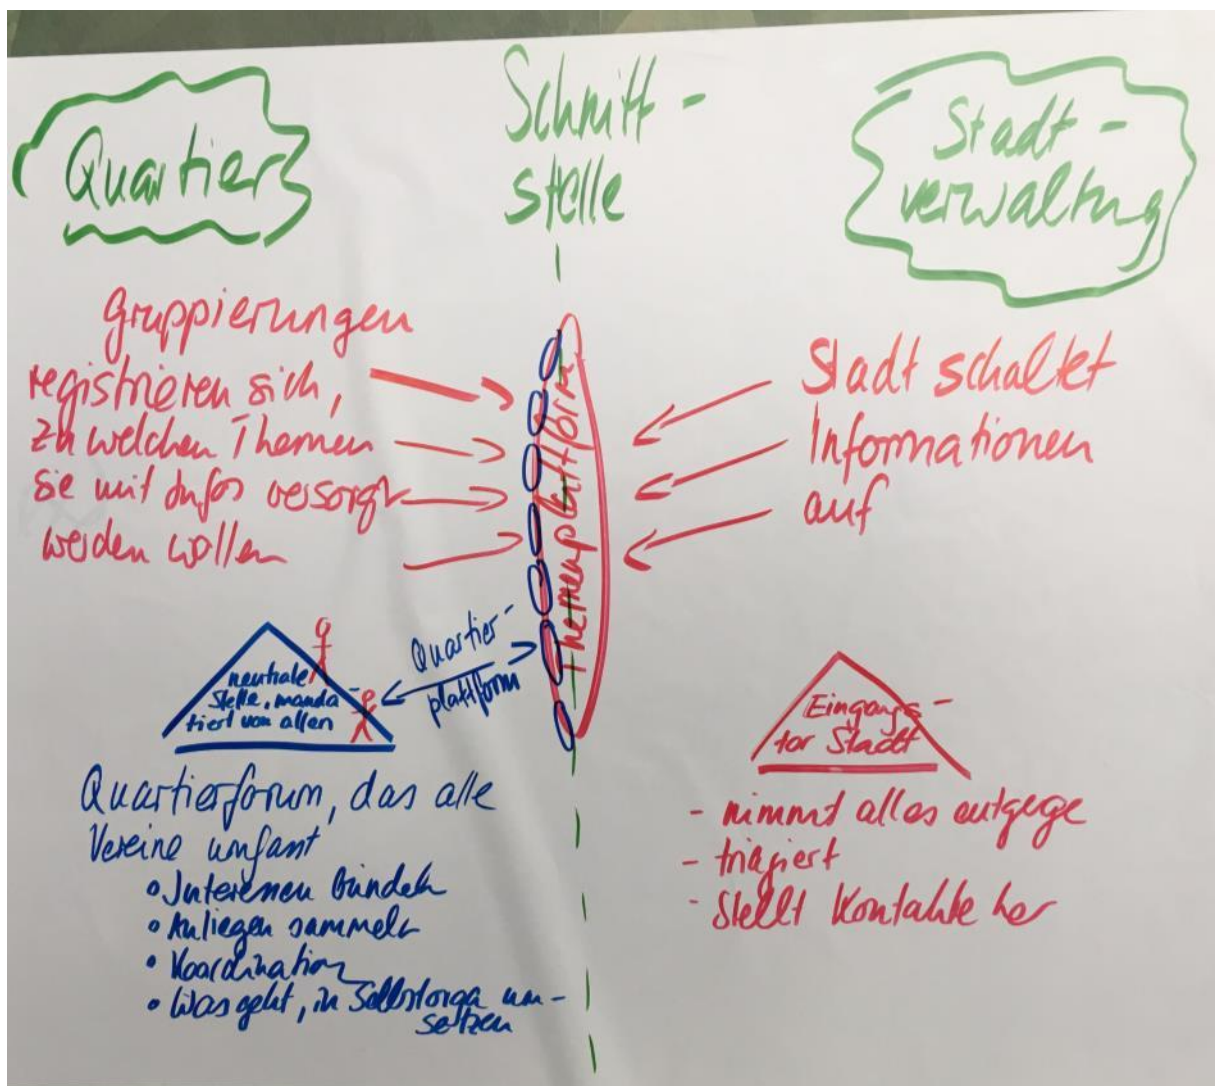 Quartier
Schnitt-
stelle
Stadt-
verwaltung
Gruppierungen
registrieren sich,
zu welchen Themen
sie mit Infos versorgt
werden wollen
Themenplattform
Stadt schaltet
Informationen
auf
Quartier-
plattform
neutrale
Stelle, manda-
tiert von allen
Quartierforum, das alle
Vereine umfasst
• Interessen bündeln
• Anliegen sammeln
• Koordination
• Was geht, in Selbstorga um-
setzen
Eingangs-
tor Stadt
- nimmt alles entgege
- triagiert
- stellt Kontakte her